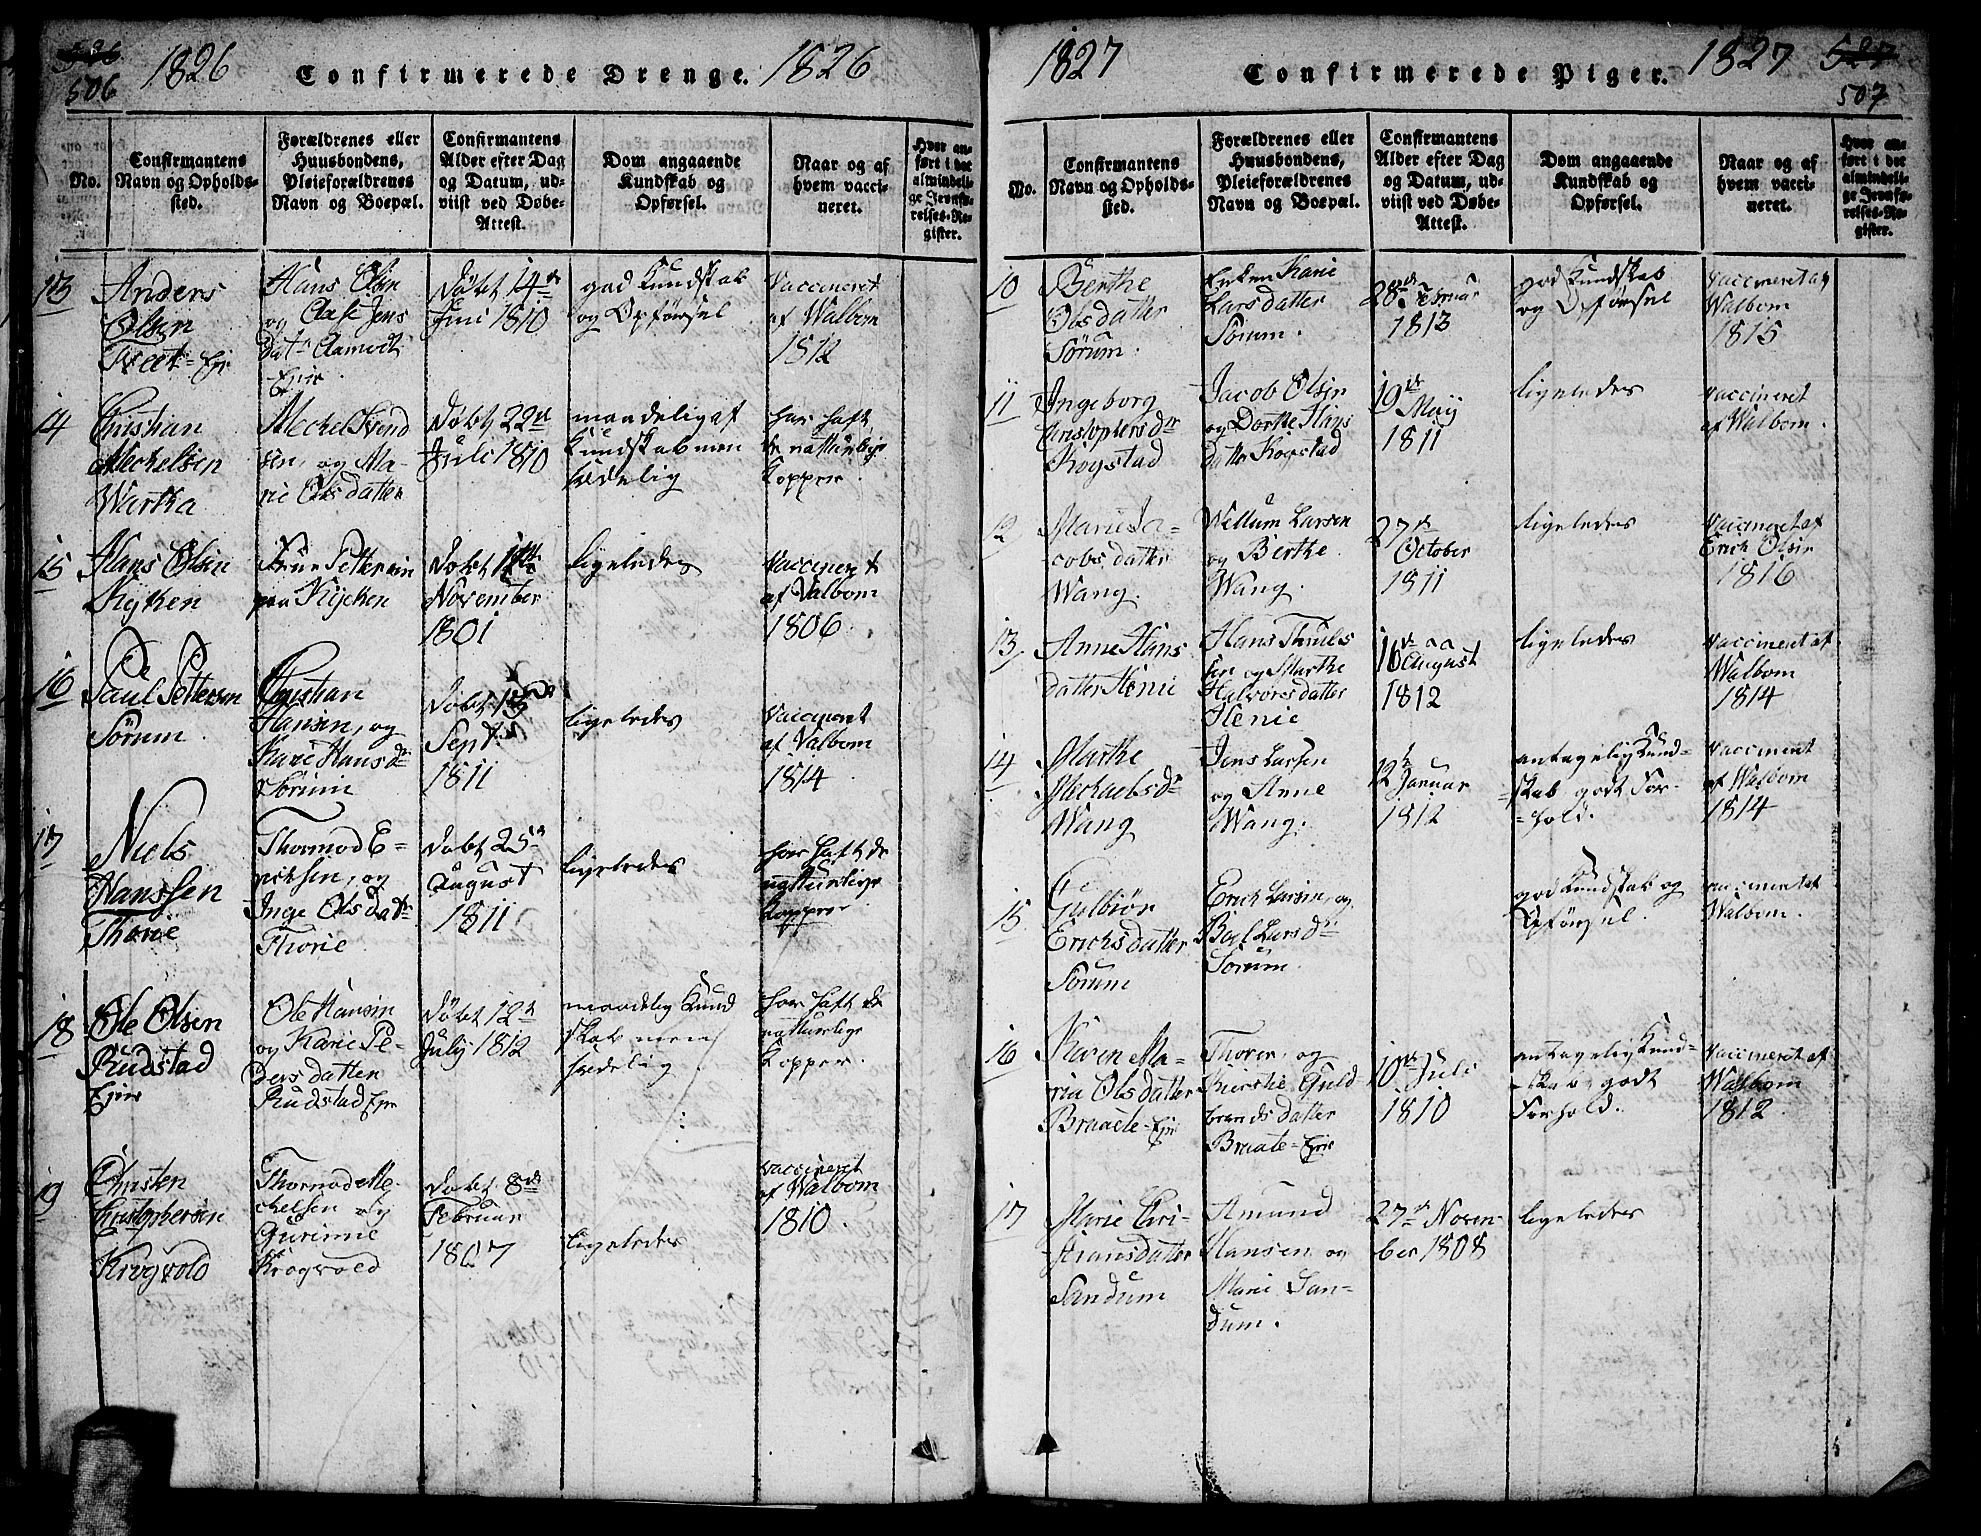 526
506
1826
Confirmerede Drenge.
1826
No.
Confirmantens Navn og Opholdssted.
Forældrenes eller Huusbondens, Pleieforældrenes Navn og Boepæl.
Confirmantens Alder efter Dag og Datum, udviist ved Døbe-Attest.
Dom angaaende Kundskab og Opførsel.
Naar og af hvem vaccineret.
Hvor anført i det almindelige Jevnførelses-Register.
13
Anders
Olsen
Tveet-Eje
Hans Olsen
og Aase Jens
Dat. Aamodt
Eje
Døbt 14de
Juni 1810
god Kundskab
og Opførsel
vaccineret
af Walbom
1812
14
Christian
Meckelsen
Wartka
Meckel Svend
sen, og Ma-
rie Olsdatter
Døbt 22de
Juli 1810
maadelig af
Kundskab men
sædelig
har haft
de naturlige
Kopper.
15
Hans Olsen
Kyken
Pettersen
paa Kycken
Døbt
November
1801
ligeledes
vaccineret
af Valbom
1806.
16
Paul Pettersen
Sørum.
Christian
Hansen, og
Kari Hansdr
Sørum
Døbt
Sept.
1811
ligeledes
vaccineret
af Valbom
1814
17
Niels
Hanssen
Thorie
Thormod E-
richsen, og
Inge Olsdatr
Thorie
Døbt 25de
August
1811
ligeledes
har haft de
naturlige
Kopper
18
Ole Olsen
Rudstad
Ejer
Ole Hansen
og Karie Pe-
dersdatter
Rudstad Eje
Døbt 12te
July 1812
maadelig Kund
skab men
sædelig
har haft de
naturlige
Kopper.
19
Christen
Christophersen
Krogvold
Thormod Me-
chelsen og
Gurinne
Krogvold
Døbt 8de
Februar
1807
ligeledes
vaccineret
af Walbom
1810.
1827
Confirmerede Piger.
1827
527
507
No.
Confirmantens Navn og Opholdssted.
Forældrenes eller Huusbondens, Pleieforældrenes Navn og Boepæl.
Confirmantens Alder efter Dag og Datum, udviist ved Døbe-Attest.
Dom angaaende Kundskab og Opførsel.
Naar og af hvem vaccineret.
Hvor anført i det almindelige Jevnførelses-Register.
10
Berthe
Olsdatter
Sørum.
Enken Karie
Larsdatter
Sørum.
28de Februar
1813
god Kundskab
og Opførsel
vaccineret af
Walbom
1815
11
Ingeborg
Christophersdr
Kogstad
Jacob Olsen
og Dorthe Hans
datter Kogstad
19de
Maij
1811
ligeledes
vaccineret
af Walbom.
12
Marie Ja-
cobsdatter
Wang.
Wellum Larsen
og Berthe
Wang.
27de
October
1811
ligeledes
vaccineret af
Erich Olsen
1816
13
Anne Hans
datter Henie
Hans Truls
sen og Marthe
Halvorsdatter
Henie
16de
August
1812
ligeledes
vaccineret af
Walbom
1814
14
Marthe
Michaelsdr
Wang
Jens Larsen
og Anne
Wang.
12te
Januar
1812
antagelig Kund-
skab godt For-
hold.
vaccineret
af Walbom
1814
15
Gulbiør
Erichsdatter
Sørum
Erich Larsen, og
Boel Larsdr
Sørum.
god Kundskab og
Opførsel.
vaccineret af
Walbom.
16
Karen Ma-
ria Olsdatter
Braate-Eje
Thoren, og
Kierstie Guld
brandsdatter
Braate-Eje
10de Juli
1810
antagelig Kund-
skab godt
Forhold.
vaccineret af
Walbom
1812.
17
Marie Chri-
stiansdatter
Sandum
Amund
Hansen og
Marie San-
dum.
27de Novem-
ber 1808
ligeledes